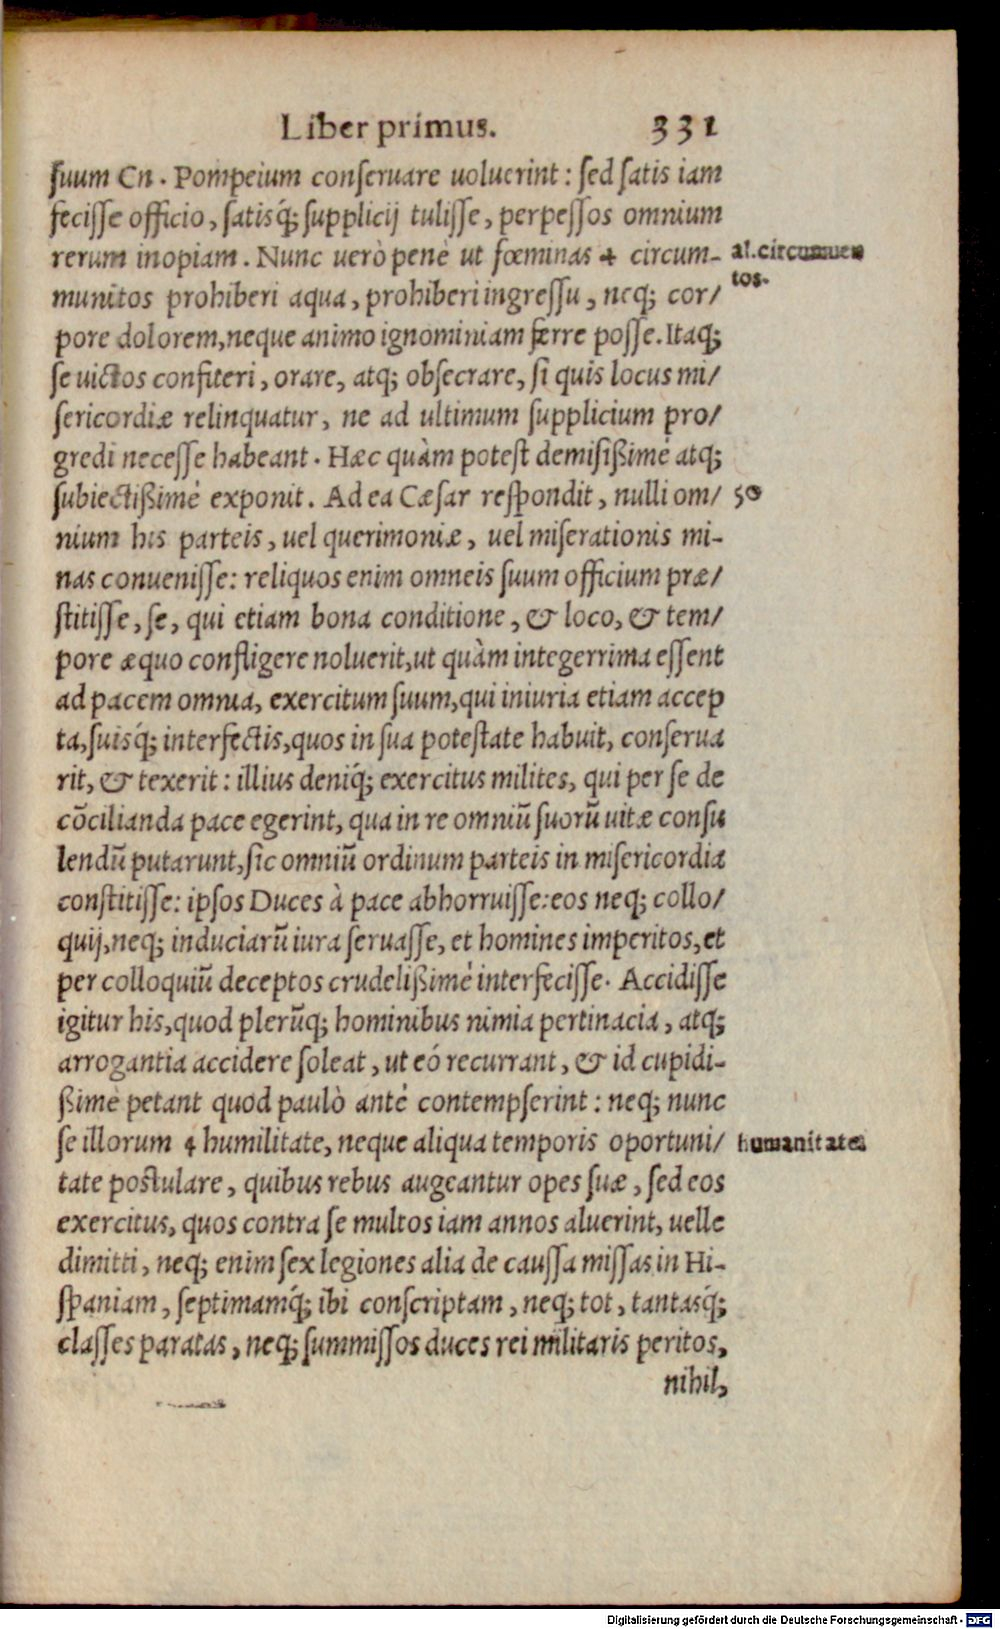 Liber primus. 331
suum Cn. Pompeium conseruare uoluerint: sed satis iam
fecisse officio, satisq́; supplicij tulisse, perpessos omnium
rerum inopiam. Nunc uerò penè ut fœminas + circum- al. circumuen
munitos prohiberi aqua, prohiberi ingressu, neq; cor/ tos.
pore dolorem, neque animo ignominiam ferre posse. Itaq;
se uictos confiteri, orare, atq; obsecrare, si quis locus mi/
sericordiæ relinquatur, ne ad ultimum supplicium pro/
gredi necesse habeant. Hæc quàm potest demisißimè atq;
subiectißimè exponit. Ad ea Cæsar respondit, nulli om/ 50
nium his parteis, uel querimoniæ, uel miserationis mi-
nas conuenisse: reliquos enim omneis suum officium præ/
stitisse, se, qui etiam bona conditione, & loco, & tem/
pore æquo confligere noluerit, ut quàm integerrima essent
ad pacem omnia, exercitum suum, qui iniuria etiam accep
ta, suisq́; interfectis, quos in sua potestate habuit, conserua
rit, & texerit: illius deniq́; exercitus milites, qui per se de
cōcilianda pace egerint, qua in re omniū suorū uitæ consu
lendū putarunt, sic omniū ordinum parteis in misericordia
constitisse: ipsos Duces à pace abhorruisse: eos neq; collo/
quij, neq; induciarū iura seruasse, et homines imperitos, et
per colloquiū deceptos crudelißimè interfecisse. Accidisse
igitur his, quod plerūq; hominibus nimia pertinacia, atq;
arrogantia accidere soleat, ut eó recurrant, & id cupidi-
ßimè petant quod paulò antè contempserint: neq; nunc
se illorum + humilitate, neque aliqua temporis oportuni/ humanitate
tate postulare, quibus rebus augeantur opes suæ, sed eos
exercitus, quos contra se multos iam annos aluerint, uelle
dimitti, neq; enim sex legiones alia de caussa missas in Hi-
spaniam, septimamq́; ibi conscriptam, neq; tot, tantasq́;
classes paratas, neq; summissos duces rei militaris peritos,
nihil,
Digitalisierung gefördert durch die Deutsche Forschungsgemeinschaft - DFG